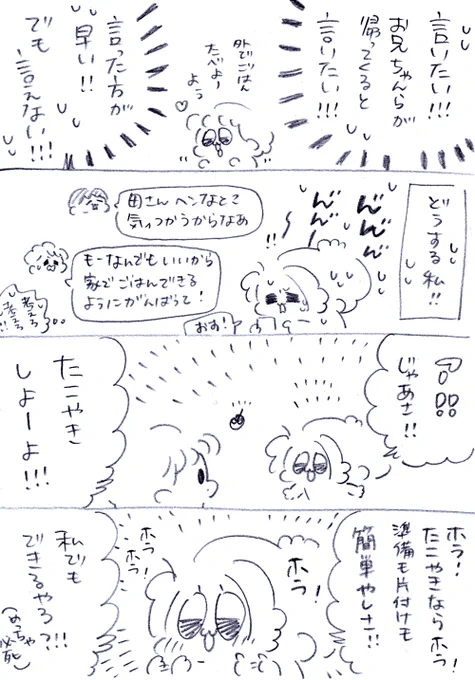 言いたい!!!
お兄ちゃんらが
帰ってくると
言いたい!!!
外でごはん
たべよー
よぅ
言った方が
早い!!
でも
言えない!!!
どうする私!!
んんん
んん
!!
母さんヘンなとこ
気ぃつかうからなあ
もーなんでもいいから
家でごはんできる
ようにがんばって!
おす!
じゃあさ!!
たこやき
しよーよ!!!
ホラ!
たこやきならホラ!
準備も片付けも
簡単やしさ!!
ホラ!
ホラ!
ホラ!
私でも
できるやろ?!!
(めっちゃ
必死)